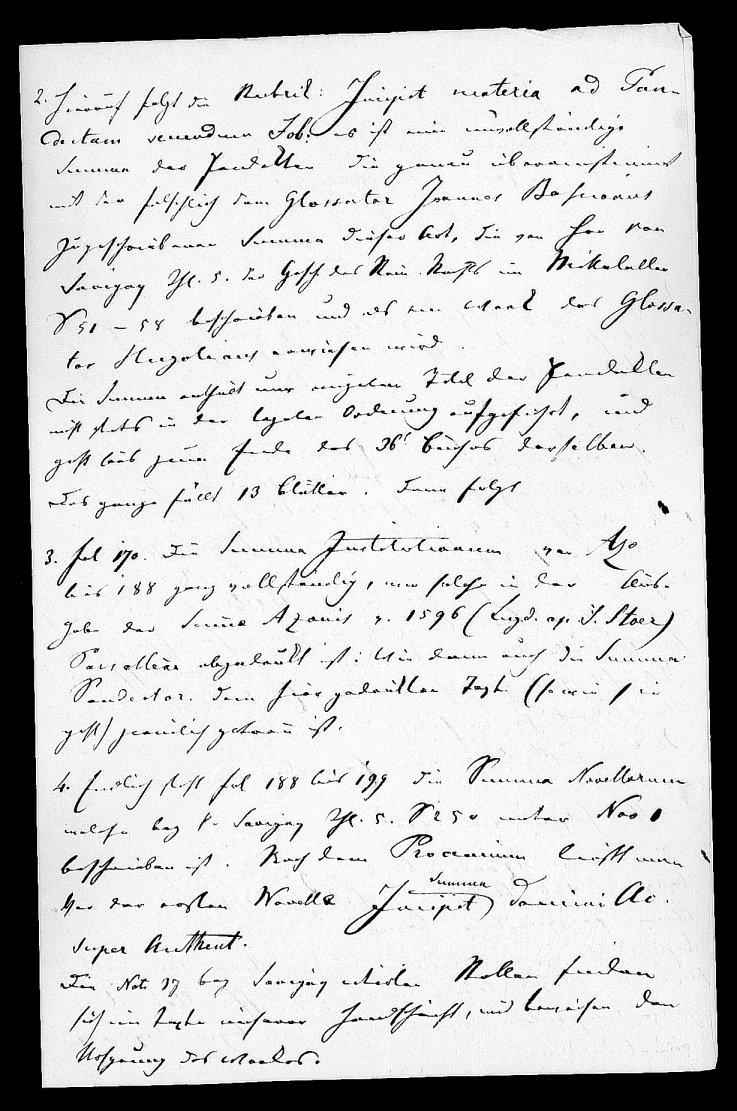 2. Hierauf folgt die Rubrik: Incipit materia ad Pan-
dectam secundum Job: es ist eine unvollständige
Summa der Pandekten die genau übereinstimmt
mit der fälschlich dem Glossator Joannes Bassianus
zugeschriebenen Summa dieser Art, die von Hrn von
Savigny Thl. 5. der Gesch des Röm. Rechts im Mittelalter
S 51 – 58 beschrieben und als ein Werk des Glossa-
tor Hugolinus erwiesen wird.
Die Summa enthält nur einzelne Titel der Pandekten
nicht stets in der legalen Ordnung aufgeführt, und
geht bis zum Ende des 36t Buches derselben.
Das ganze füllt 13 Blätter. Dann folgt
3. Fol 170. Die Summa Institutionum von Azo
bis 188 ganz vollständig, wie solche in der Aus-
gabe der Summa Azonis v. 1596 (Lugd. ap. J. Stoer)
abgedruckt ist: Wie denn auch die Summa
Pandectar. dem hier gedruckten Texte (so wie sie
geht) ziemlich getreu ist.
4. Endlich steht fol 188 bis 199 die Summa Novellarum
welche bey v. Savigny Thl. 5. S 250 unter Nro 1
beschrieben ist. Nach dem Prooemium liest man
Vor der ersten Novelle Incipit summa domini Ac.
super Authent.
Die Not. 37 bey Savigny Stellen finden
sich im Texte unserer Handschrift, und beweisen den
Ursprung des Werkes.